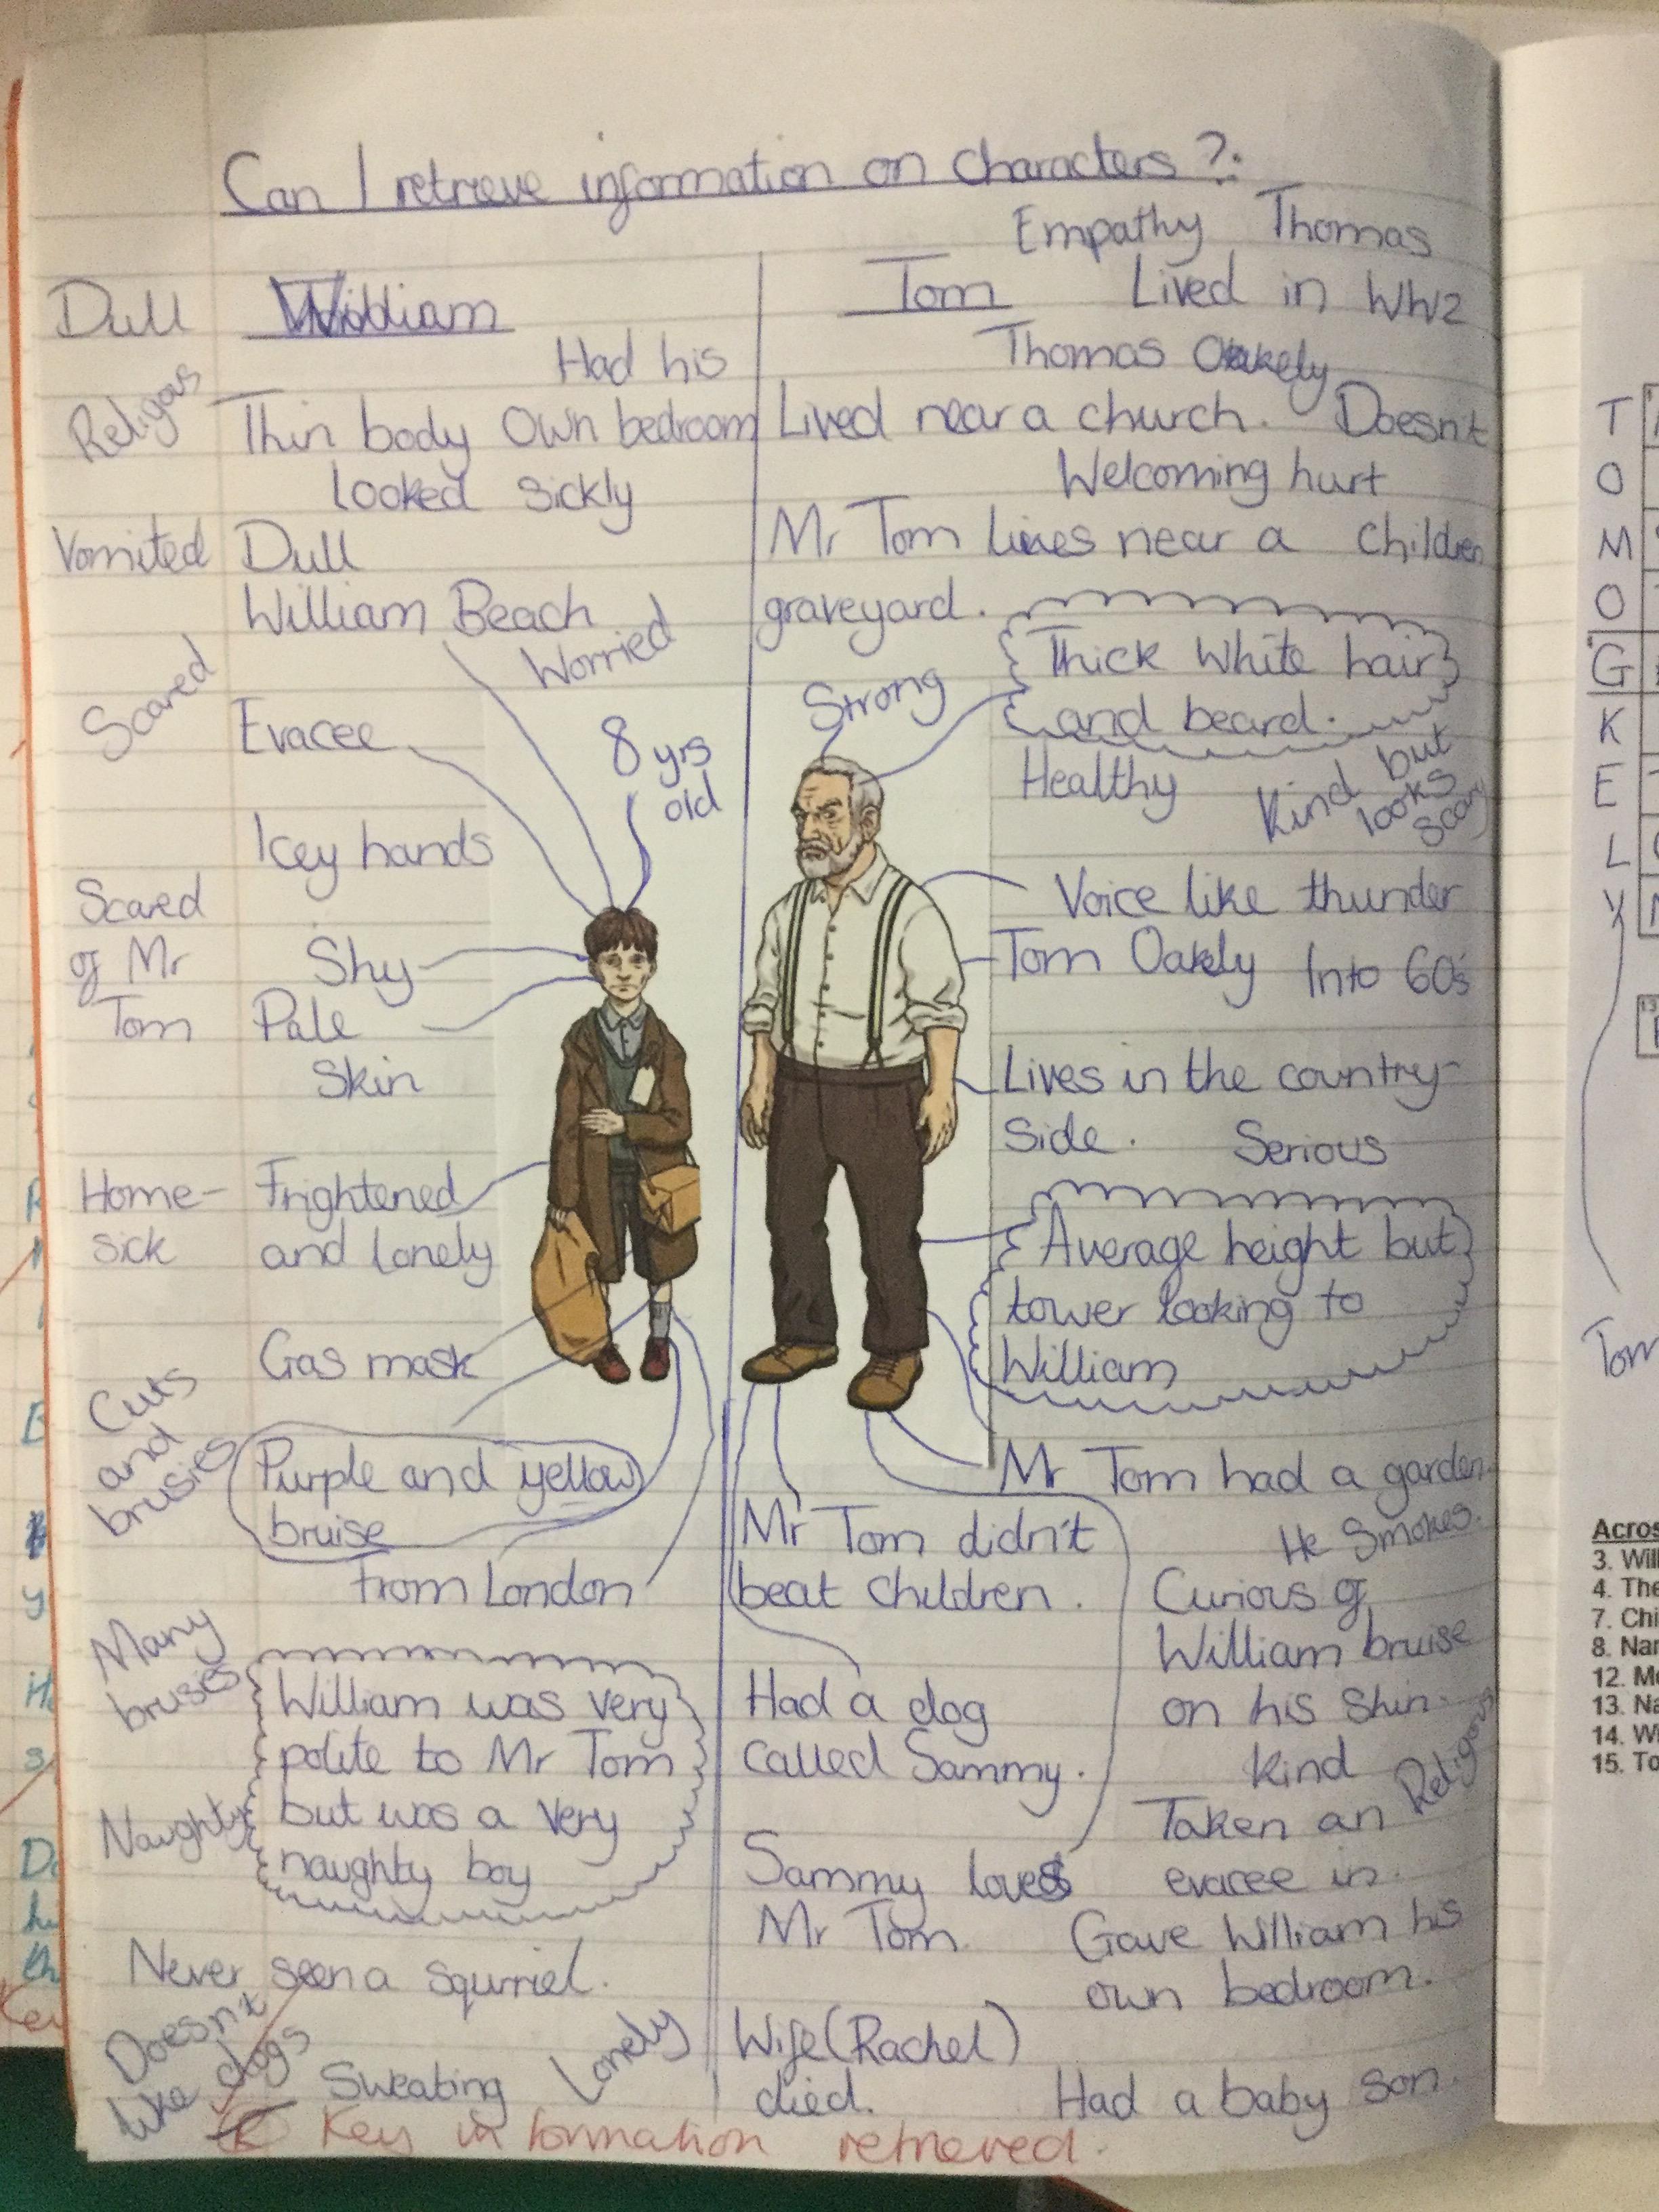 Can I retrieve information on characters?:
Empathy Thomas
Dull William
Tom Lived in WW2
Had his
Thomas Oakely
Religous
Thin body Own bedroom
Lived near a church. Doesn't
looked sickly
Welcoming hurt
Vomited Dull
Mr Tom lives near a children
William Beach
graveyard.
Worried
Thick White hair
and beard.
Scared
Strong
Evacee
8 yrs
old
Healthy
Kind but
looks
scary
Icey hands
Scared
of Mr
Tom
Voice like thunder
Shy
Tom Oakely Into 60's
Pale
Skin
Lives in the country-
side.
Serious
Home-
sick
Frightened
and lonely
Average height but
tower looking to
William
Gas mask
Cuts
and
brusies
Purple and yellow
bruise
Mr Tom had a garden.
He Smokes.
From London
Mr Tom didn't
beat children.
Curious of
William bruise
on his shin.
Many
brusies
William was very
polite to Mr Tom
but was a very
naughty boy
Had a dog
called Sammy.
Kind
Religous
Naughty
Taken an
evacee in.
Sammy loves
Mr Tom.
Gave William his
own bedroom.
Never seen a squrriel.
Doesn't
like dogs
Sweating
Lonely
Wife (Rachel)
died.
Had a baby son.
Key information retrieved.
T
O
M
O
G
K
E
L
Y
13
Tom
Acros
3. Will
4. The
7. Chi
8. Nar
12. Mo
13. Na
14. Wi
15. To